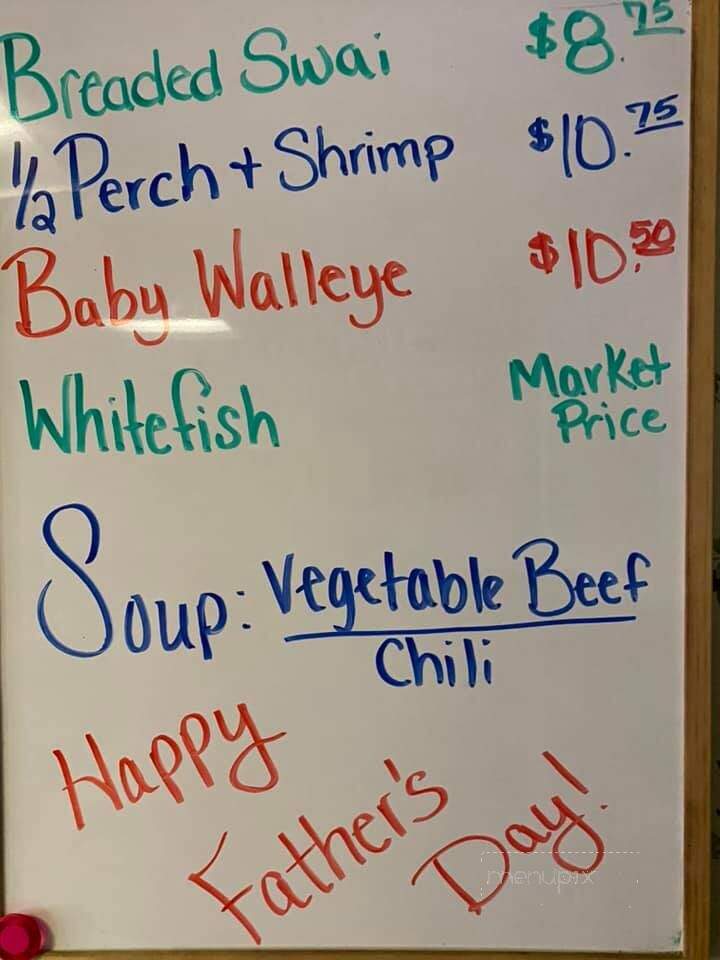 Breaded Swai $8.75
1/2 Perch + Shrimp $10.75
Baby Walleye $10.50
Whitefish Market Price
Soup: Vegetable Beef
Chili
Happy
Father's
Day!
menupix